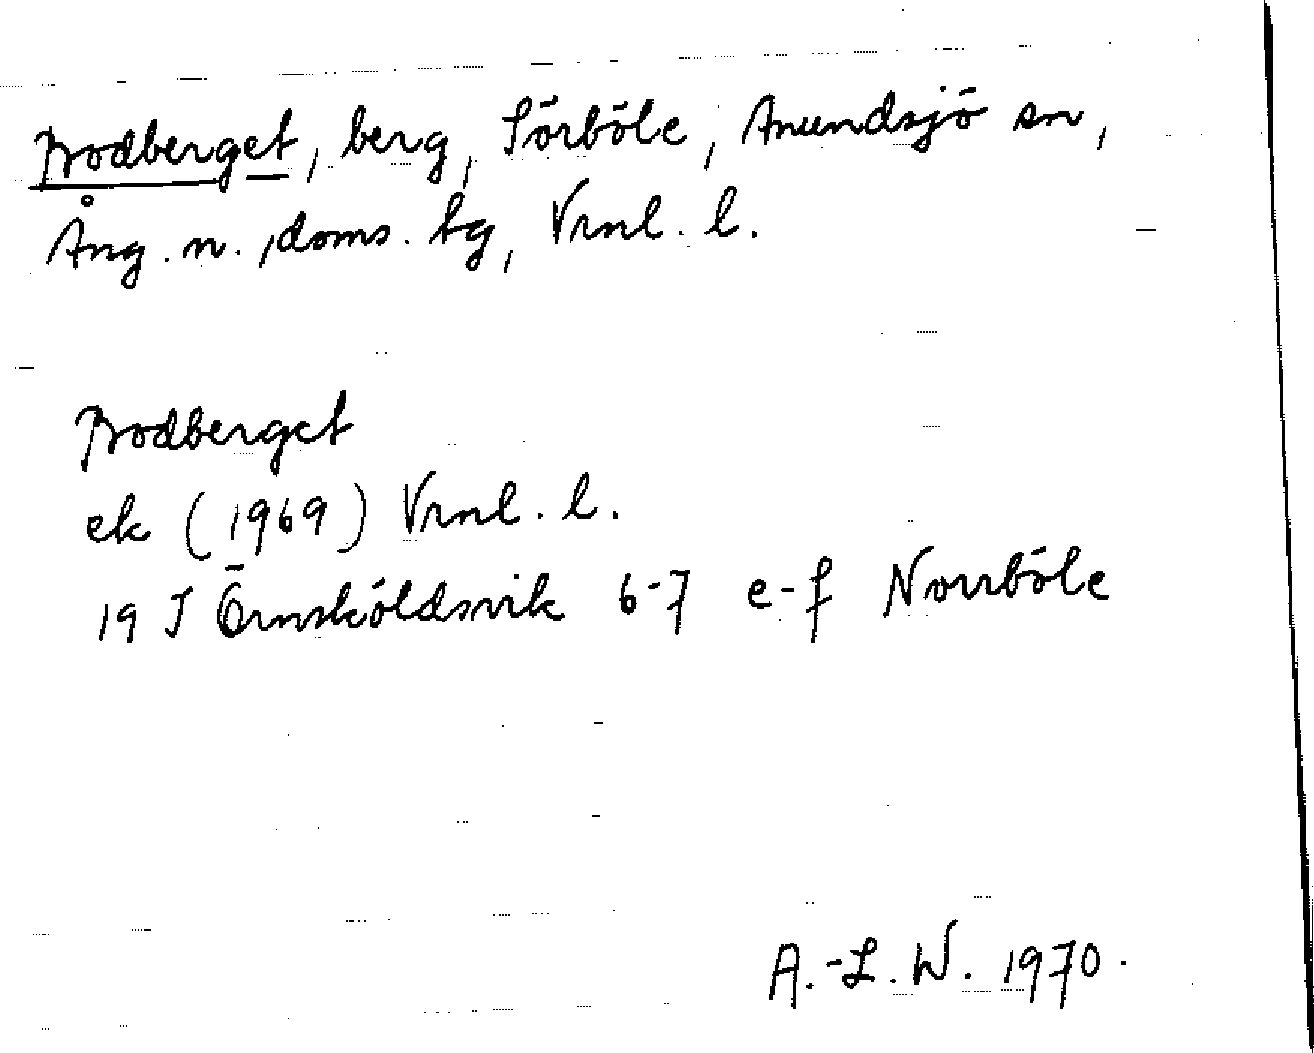 Brodberget, berg, Sörböle, Anundsjö sn,
Ång. n., doms. tg, Vrnl. l.
Brodberget
ek (1969) Vrnl. l.
19 J Örnsköldsvik 6-7 e-f Norrböle
A.-L. W. 1970.